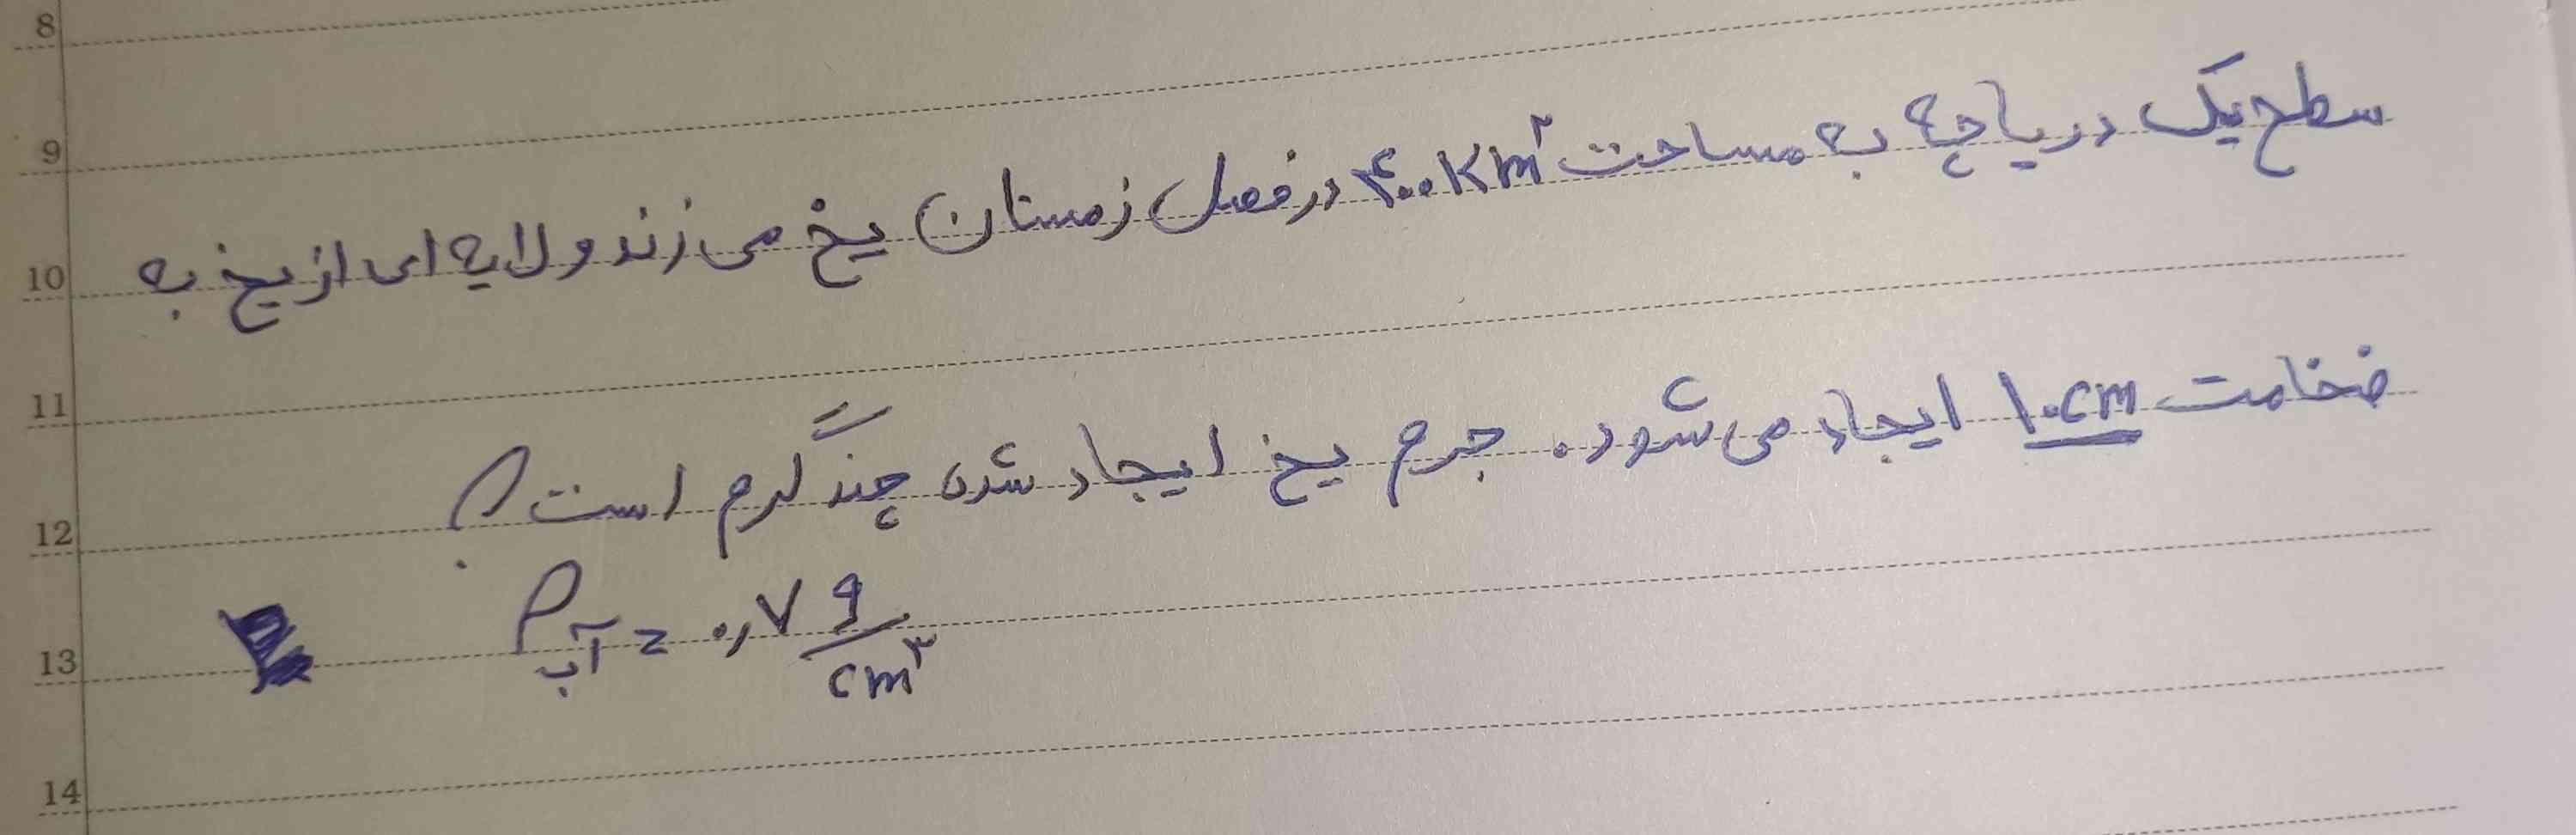 8
9
سطح یک دریاچه به مساحت ۴۰۰ Km² در فصل زمستان یخ می زند و لایه ای از یخ به
10
11
ضخامت ۱۰cm ایجاد می شود. جرم یخ ایجاد شده چند گرم است؟
12
ρ آب = ۰,۷ g/cm³
13
14